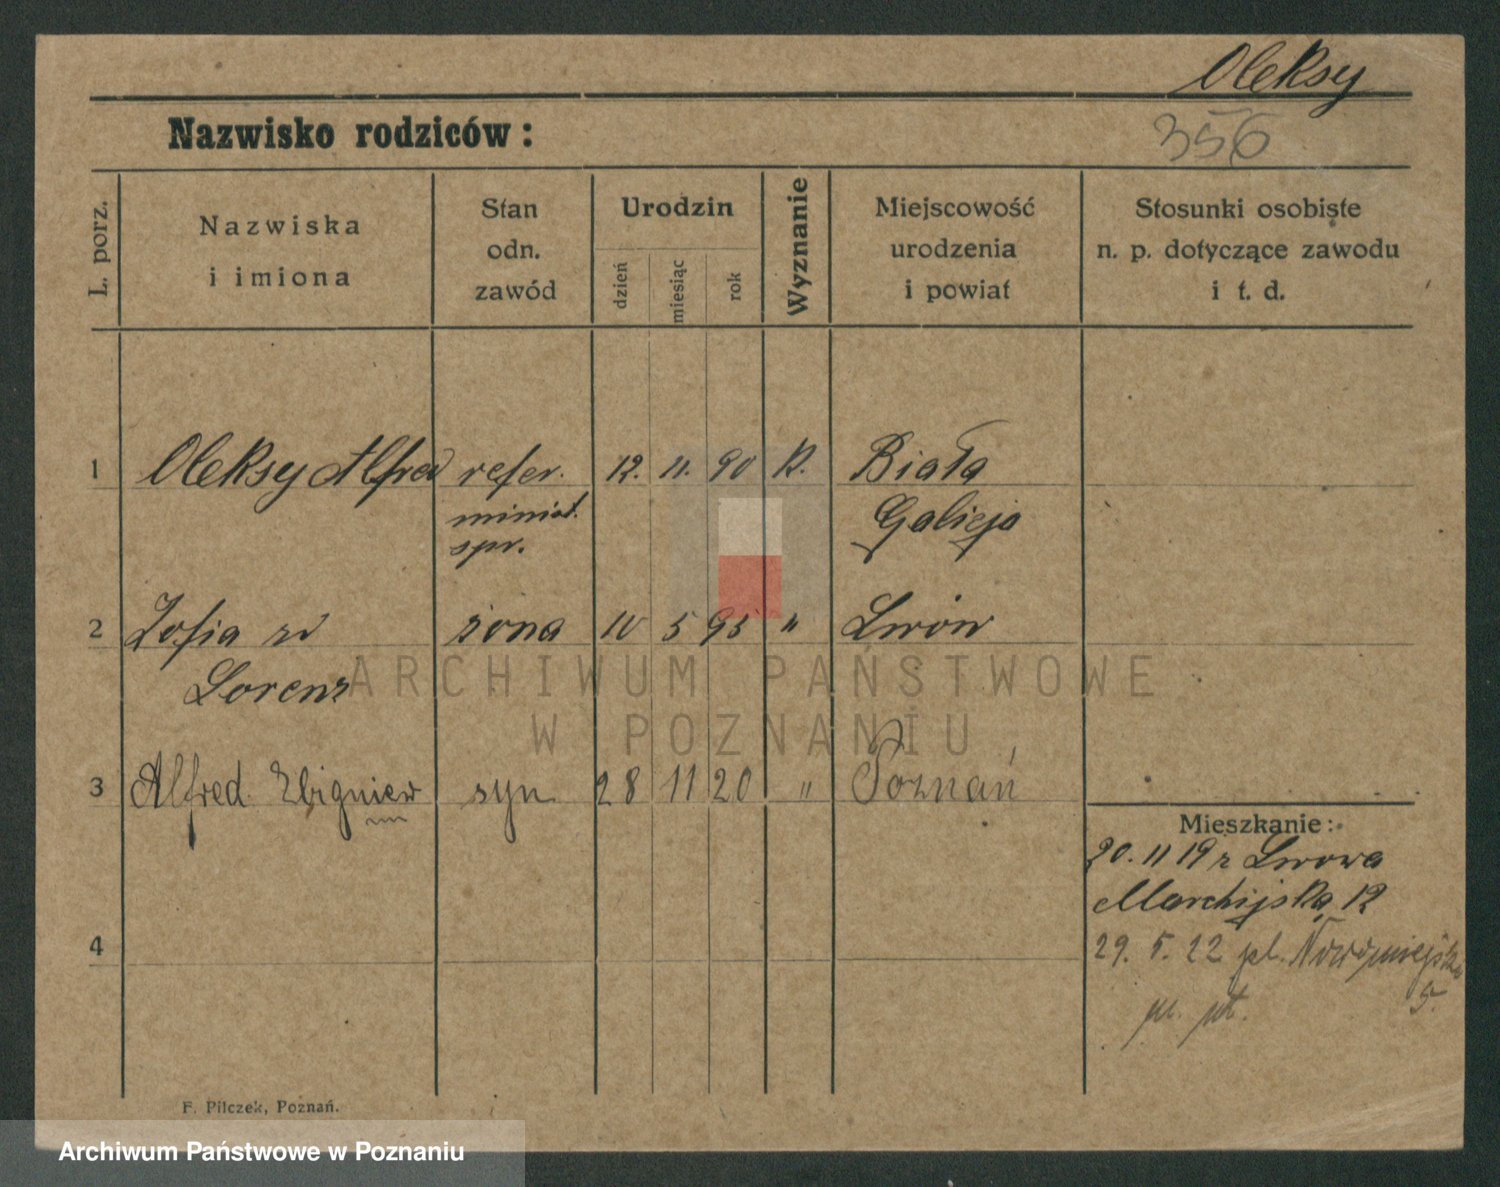 Oleksy
356
Nazwisko rodziców:
L. porz.
Nazwiska
i imiona
Stan
odn.
zawód
Urodzin
dzień
miesiąc
rok
Wyznanie
Miejscowość
urodzenia
i powiat
Stosunki osobiste
n. p. dotyczące zawodu
i t. d.
1 Oleksy Alfred refer. 12. 11. 90 K. Biała
minist. Galicja
spr.
2 Zofia żona 10 5 95 " Lwów
Lorenz
3 Alfred Zbigniew syn 28 11 20 " Poznań
Mieszkanie:
20. 11 19 z Lwowa
12
4
29. 5. 22 pl. Nowomiejski
5.
F. Pilczek, Poznań.
ARCHIWUM PAŃSTWOWE
W POZNANIU
Archiwum Państwowe w Poznaniu